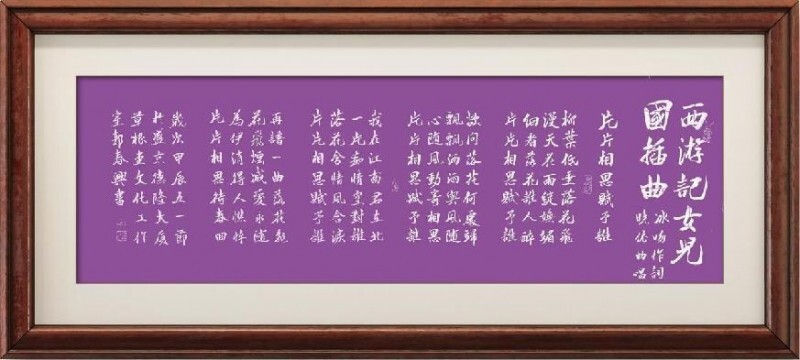 西游記女兒
國插曲
冰鳴作詞
曉佑曲唱
片片相思賦予誰
柳葉低垂落花飛
漫天花雨綻嬌媚
佃者落花離人醉
片片相思賦予誰
試問落花何處歸
飄飄洒洒與風隨
心随風動寄相思
片片相思賦予誰
我在江南君在北
一片痴情空對誰
落花含情風含淚
片片相思賦予誰
再譜一曲落花
花飛煙滅愛永随
為伊消得人憔悴
片片相思待春回
歲次甲辰五一節
於盛京德隆大廈
草根畫文化工作
室郭春興書